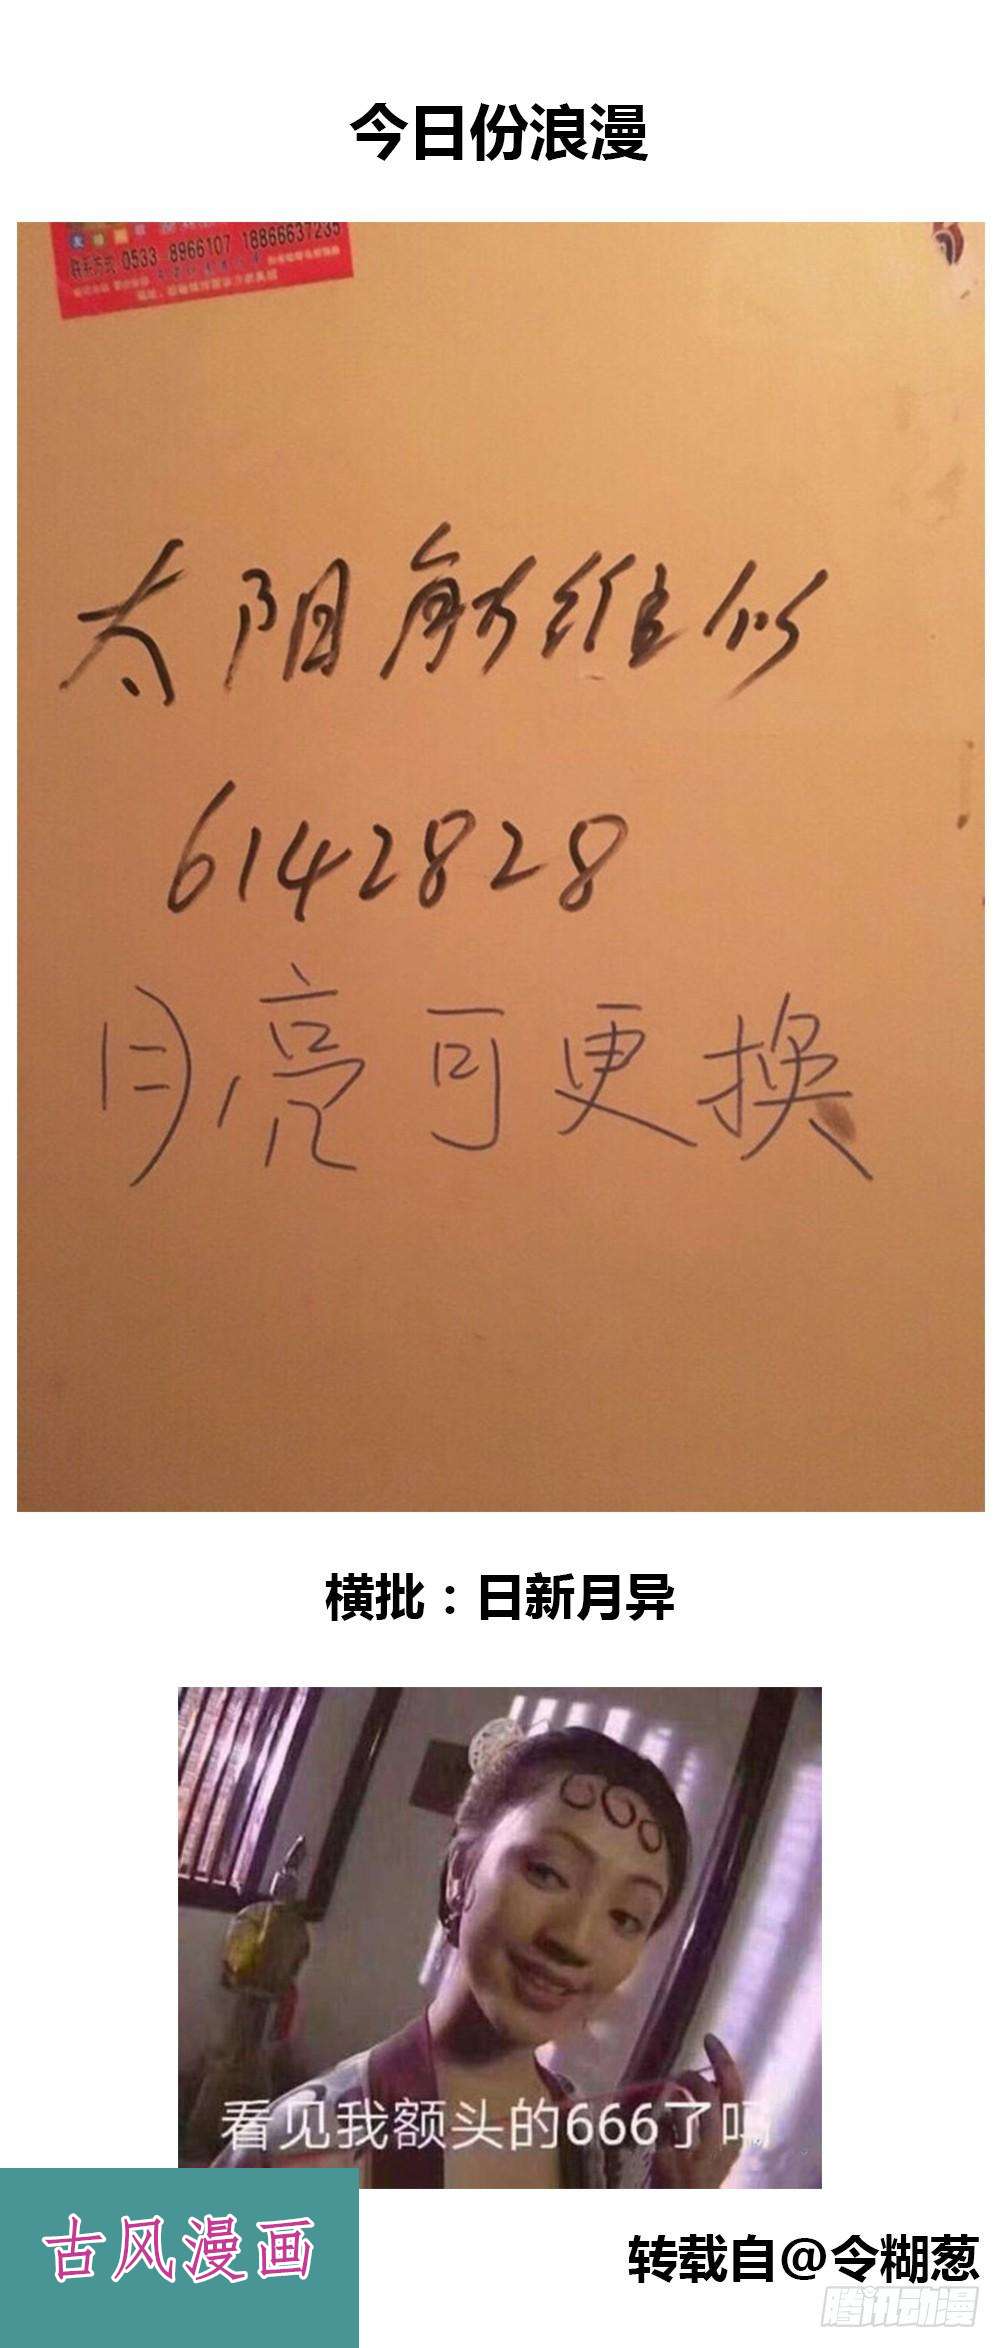 今日份浪漫
联系方式 0533 8966107 18866637235
太阳能维修
6142828
月亮可更换
横批：日新月异
看见我额头的666了吗
古风漫画
转载自@令糊葱
腾讯动漫